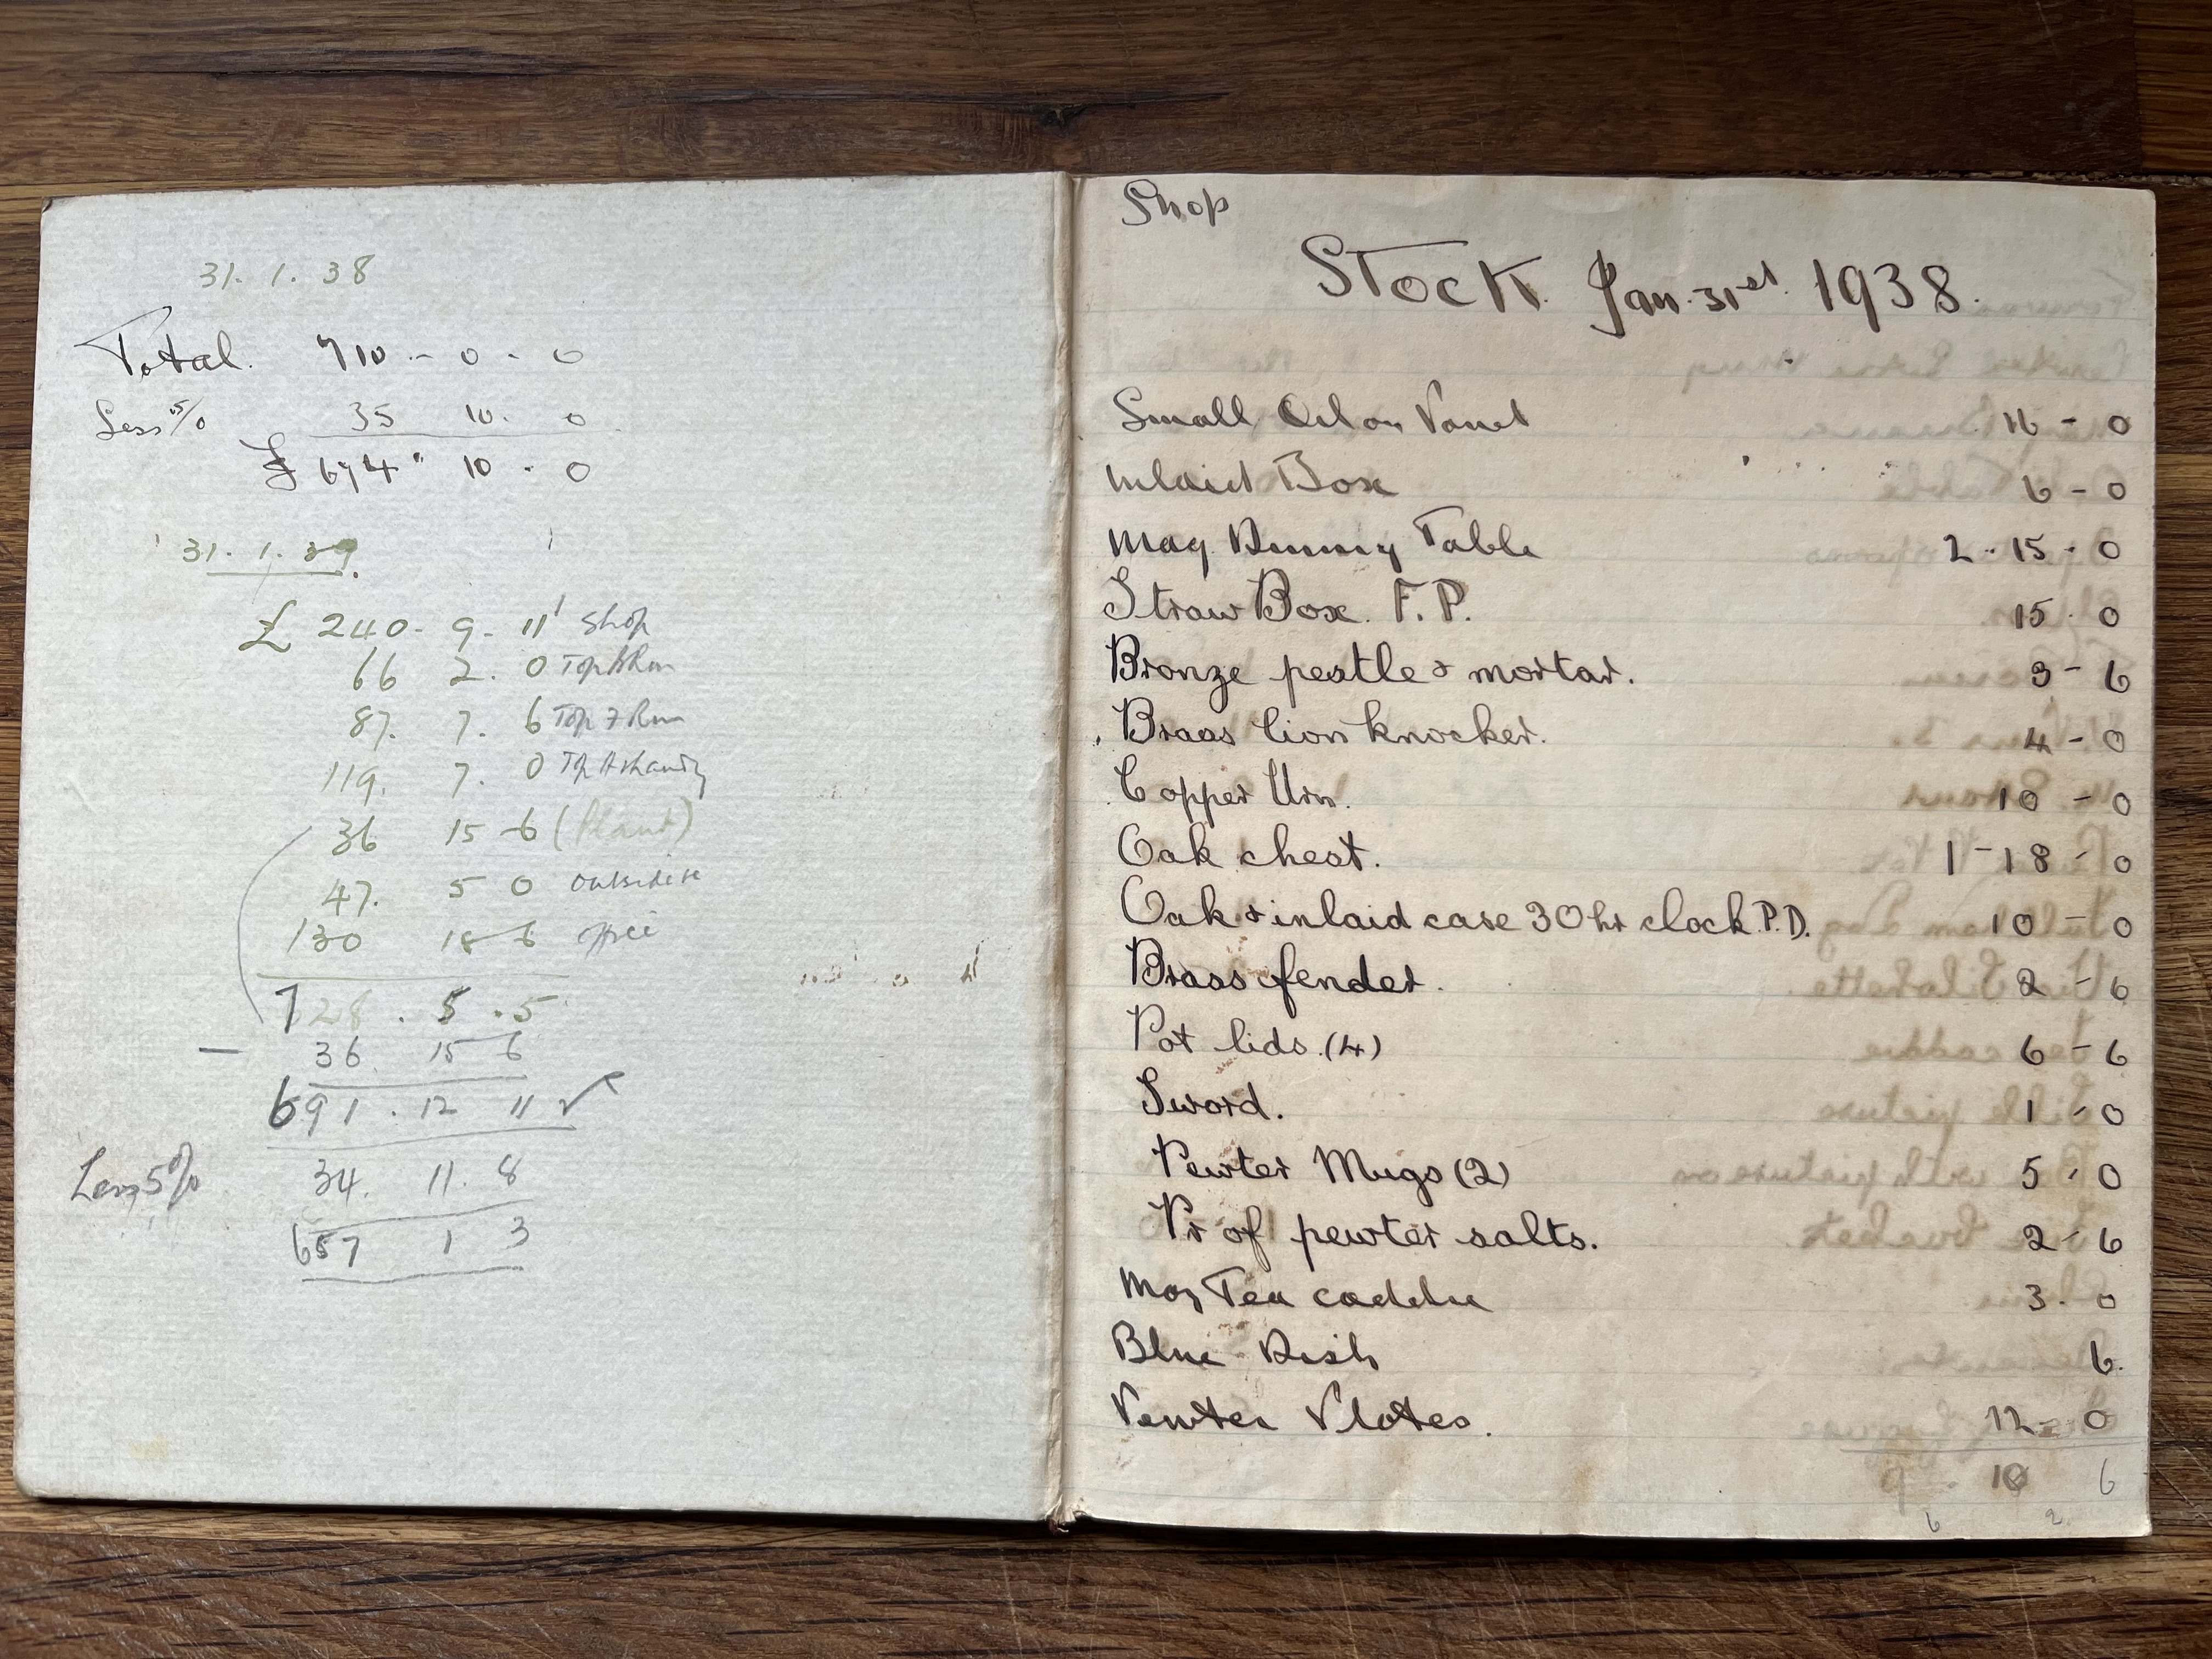 31. 1. 38
Total. 710 - 0 - 0
Less 5% 35 10. 0
£ 674 " 10 - 0
31. 1. 39.
£ 240 - 9 - 11 Shop
66 2. 0 Top Rm
87. 7. 6 Top F Rm
119. 7. 0 Top
36 15 - 6 (Plant)
47. 5 0 outside
130 18 - 6 office
728 . 5 . 5
- 36 15 6
691 . 12 11 ✓
Less 5% 34. 11. 8
657 1 3
Shop
Stock. Jan. 31st. 1938.
Small Oil on Panel 16 - 0
Inlaid Box 6 - 0
Mag Dummy Table 2 - 15 - 0
Straw Box. F.P. 15 - 0
Bronze pestle & mortar. 3 - 6
Brass lion knocker. 4 - 0
Copper Urn. 10 - 0
Oak chest. 1 - 18 - 0
Oak & inlaid case 30 hr clock P.D. 10 - 0
Brass fender. 2 - 6
Pot lids. (4) 6 - 6
Sword. 1 - 0
Pewter Mugs (2) 5 - 0
Pr of pewter salts. 2 - 6
Mog Tea caddie 3. 0
Blue Dish 6.
Pewter Plates. 12 - 0
9 - 10 6
6 2.